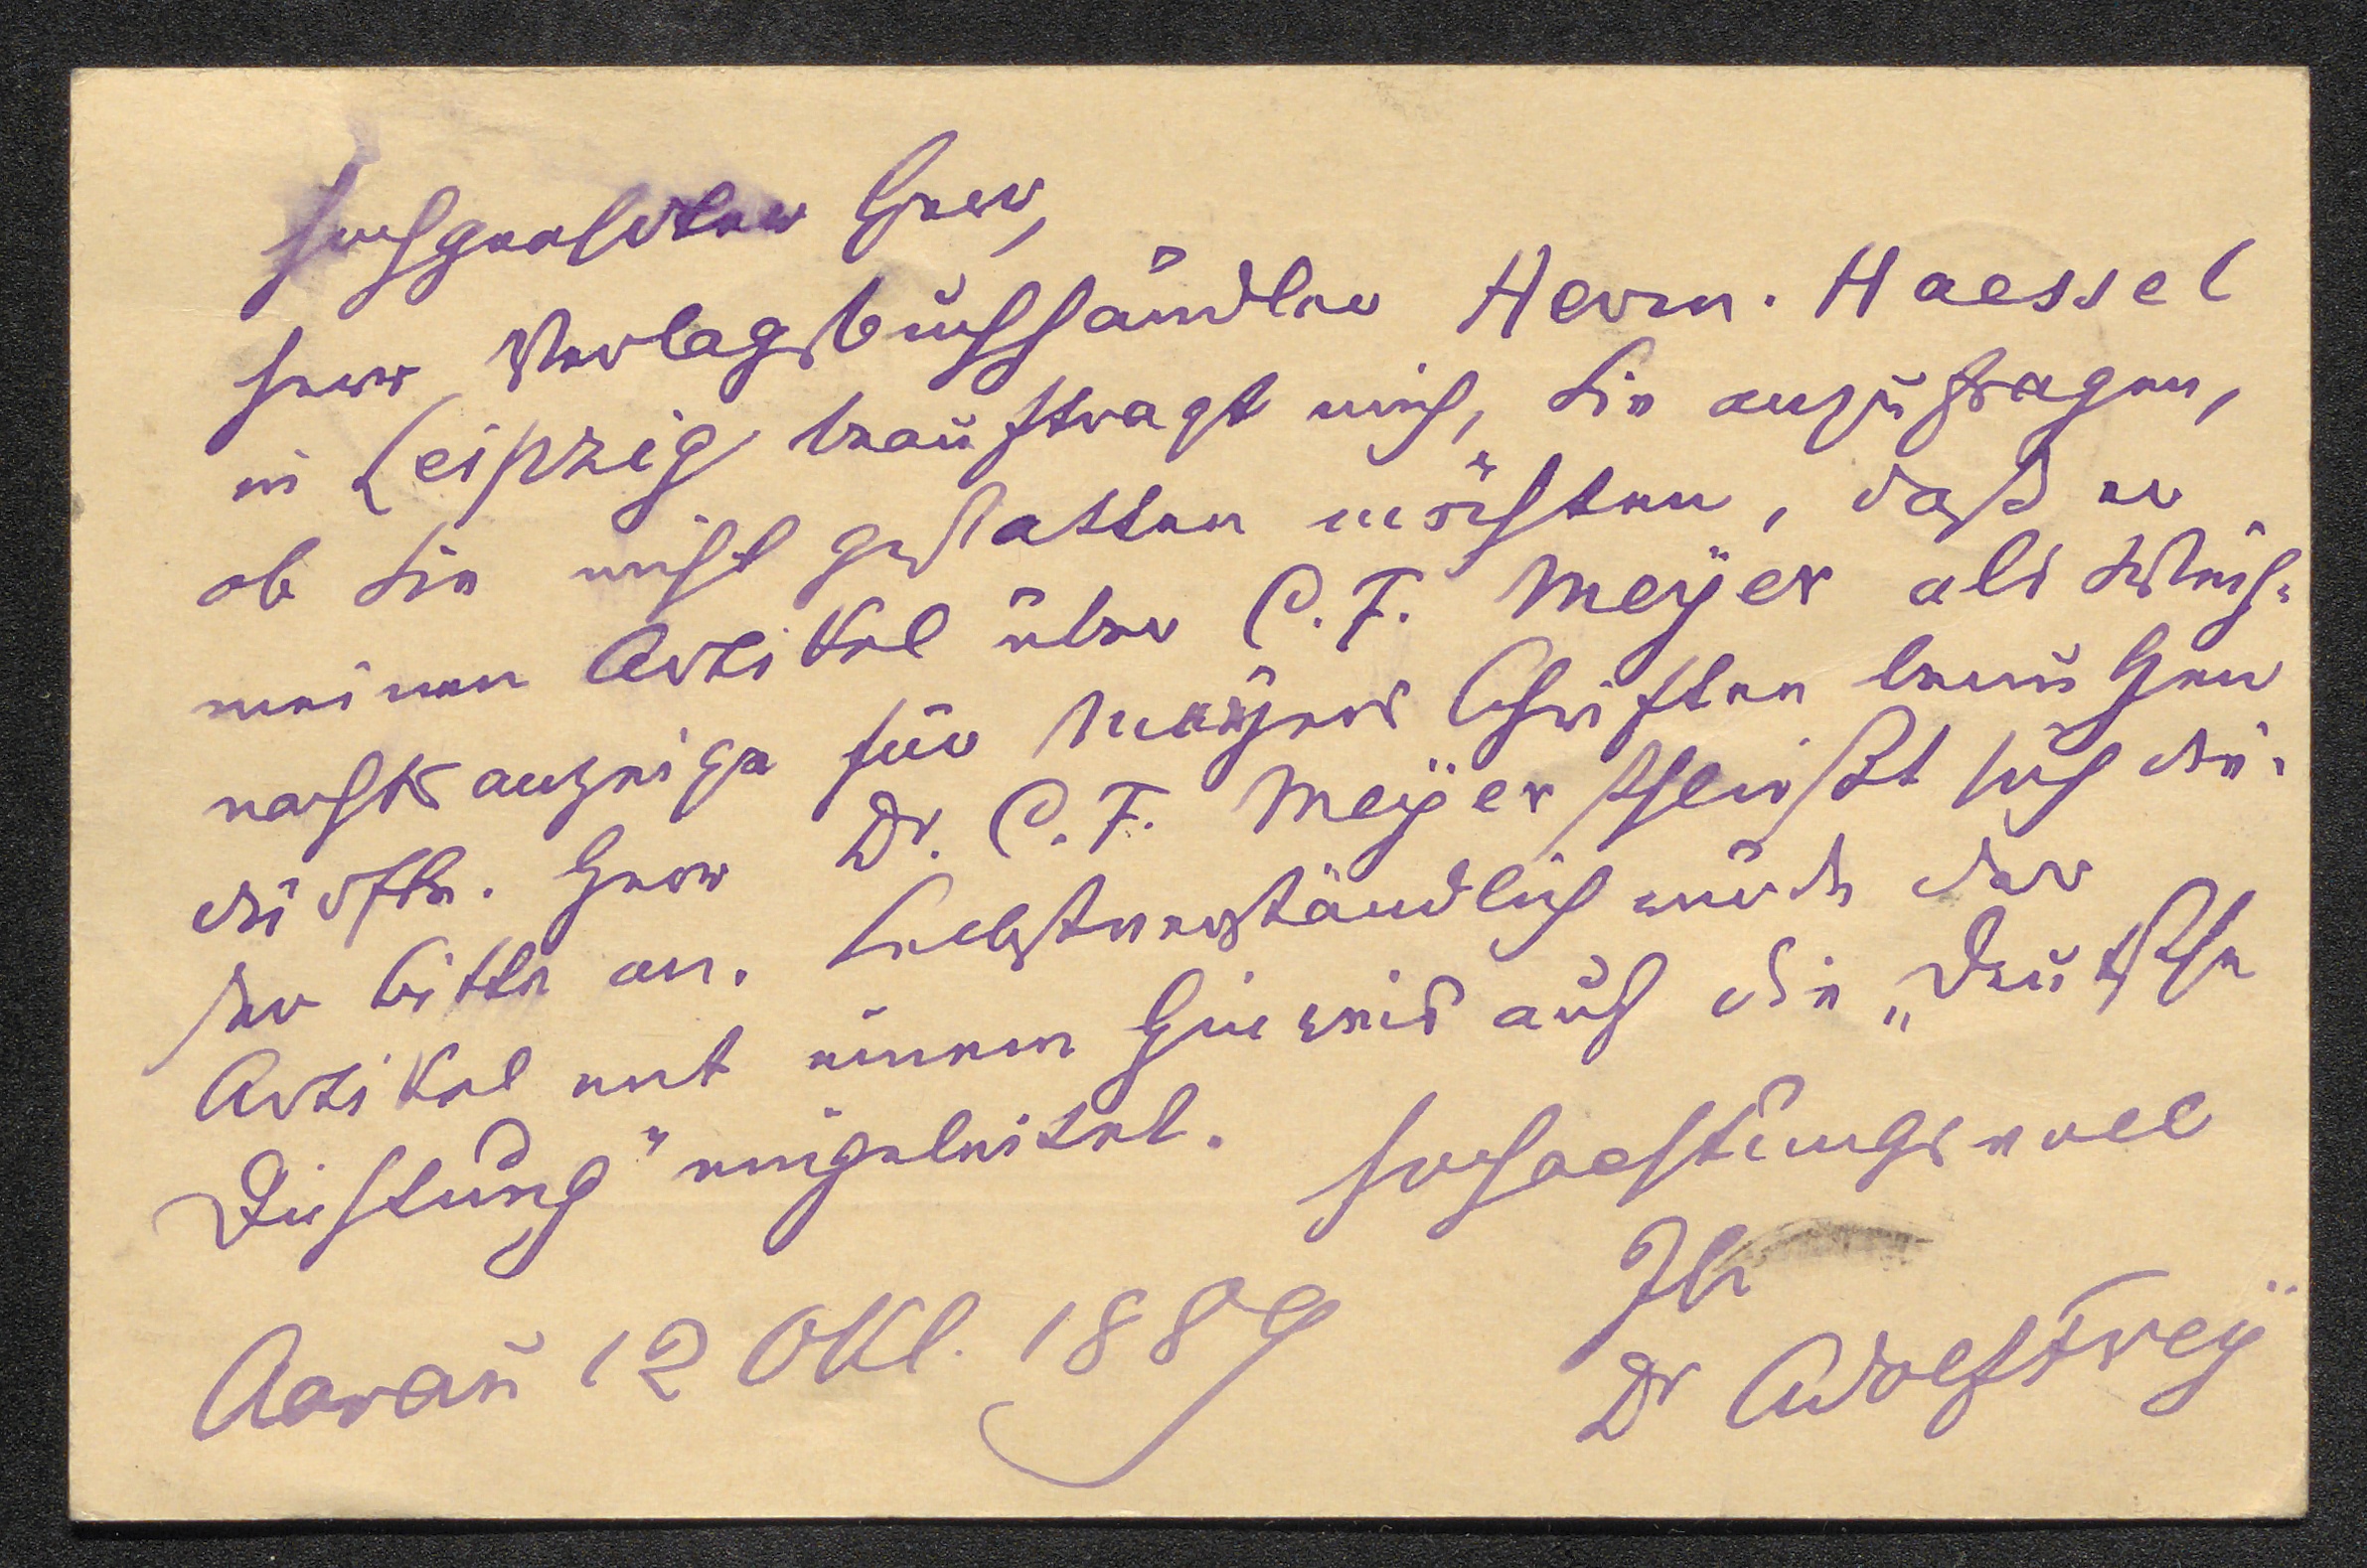 Hochgeehrter Herr,
Herr Verlagsbuchhändler Herm. Haessel
in Leipzig beauftragt mich, Sie anzufragen,
ob Sie nicht gestatten möchten, daß er
meinen Artikel über C. F. Meyer als Weih-
nachtsanzeige für Meyers Schriften benutzen
dürfte. Herr Dr. C. F. Meyer schließt sich die-
ser Bitte an. Selbstverständlich würde der
Artikel mit einem Hinweis auf die „Deutsche
Dichtung" eingeleitet.
Hochachtungsvoll
Ihr
Dr Adolf Frey
Aarau 12 Okt. 1889